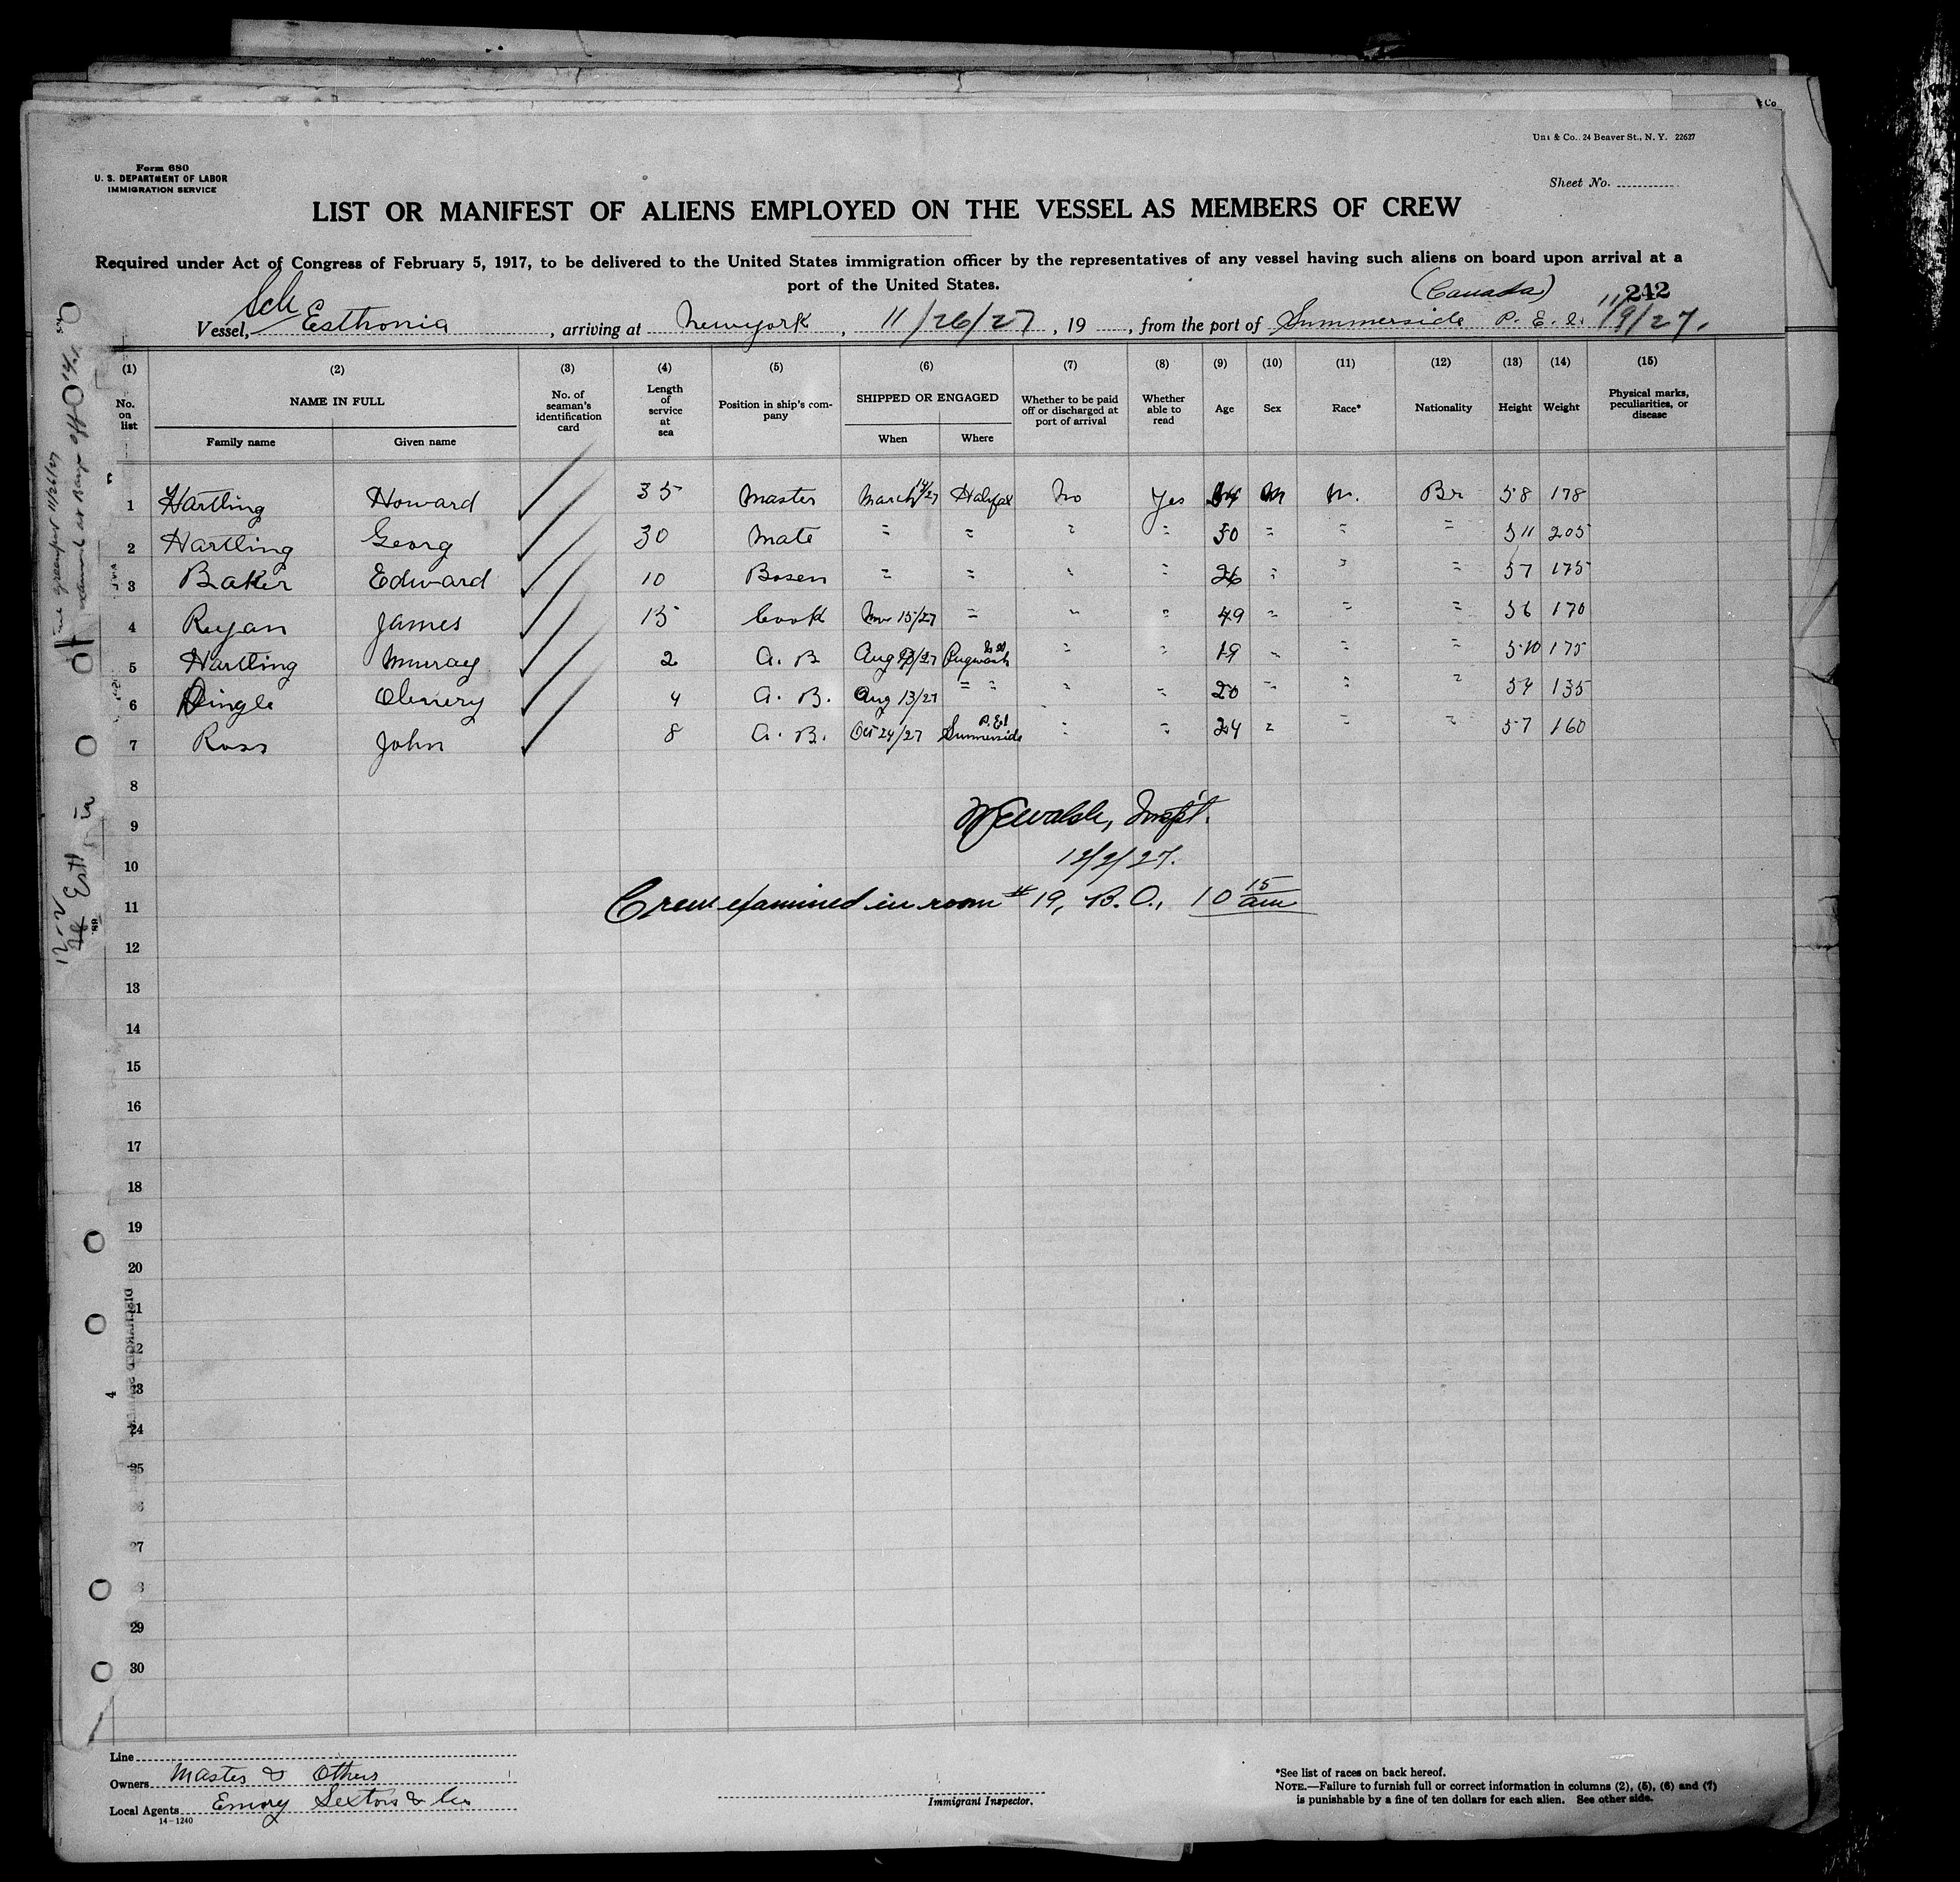 Unz & Co., 24 Beaver St., N. Y. 22627
Form 680
U. S. DEPARTMENT OF LABOR
IMMIGRATION SERVICE
Sheet No.
LIST OR MANIFEST OF ALIENS EMPLOYED ON THE VESSEL AS MEMBERS OF CREW
Required under Act of Congress of February 5, 1917, to be delivered to the United States immigration officer by the representatives of any vessel having such aliens on board upon arrival at a
port of the United States.
(Canada) 242
Vessel, Sch Esthonia, arriving at New York, 11/26/27, 19, from the port of Summerside P. E. I. 11/9/27.
(1) (2) (3) (4) (5) (6) (7) (8) (9) (10) (11) (12) (13) (14) (15)
No. on list NAME IN FULL Family name Given name No. of seaman's identification card Length of service at sea Position in ship's company SHIPPED OR ENGAGED When Where Whether to be paid off or discharged at port of arrival Whether able to read Age Sex Race* Nationality Height Weight Physical marks, peculiarities, or disease
1 Hartling Howard 35 Master March 14/27 Halifax No Yes M Br 5 8 178
2 Hartling Georg 30 Mate " " " " 50 " " " 5 11 205
3 Baker Edward 10 Bosen " " " " 26 " " " 5 7 175
4 Ryan James 15 Cook 15/27 " " " 49 " " " 5 6 170
5 Hartling Murray 2 A. B Aug /27 Pugwash " " 19 " " " 5 10 175
6 Dingle 4 A. B. Aug 13/27 " " " " 20 " " " 5 4 135
7 Ross John 8 A. B. Oct 24/27 Summerside P.E.I " " 24 " " " 5 7 160
8
9 Walsh, Inspt.
10 12/2/27.
11 Crew examined in room # 19, B. O., 10 15 am
12
13
14
15
16
17
18
19
20
21
22
23
24
25
26
27
28
29
30
Line
Owners Master & Others
Local Agents Emory Sexton & Co
14-1240
Immigrant Inspector.
*See list of races on back hereof.
NOTE.—Failure to furnish full or correct information in columns (2), (5), (6) and (7)
is punishable by a fine of ten dollars for each alien. See other side.